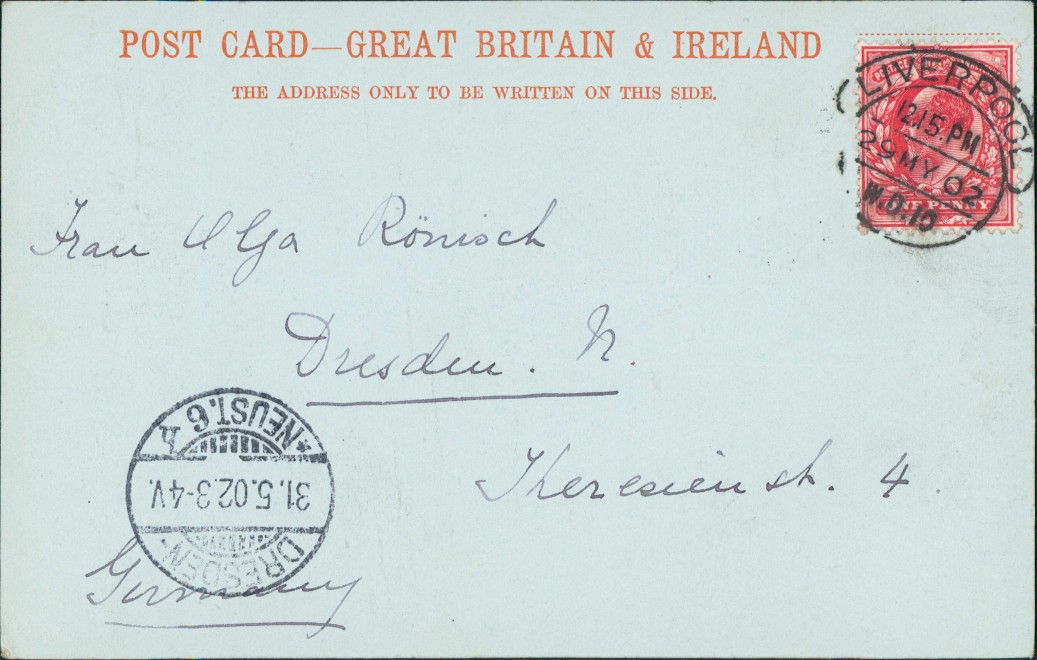 POST CARD—GREAT BRITAIN & IRELAND
THE ADDRESS ONLY TO BE WRITTEN ON THIS SIDE.
LIVERPOOL
12.15.PM
29 MY 02
W.D.10
ONE PENNY
Frau Olga Rönisch
Dresden. N.
Theresienstr. 4.
Germany
DRESDEN-
31.5.02 3-4 V.
*NEUST. 6